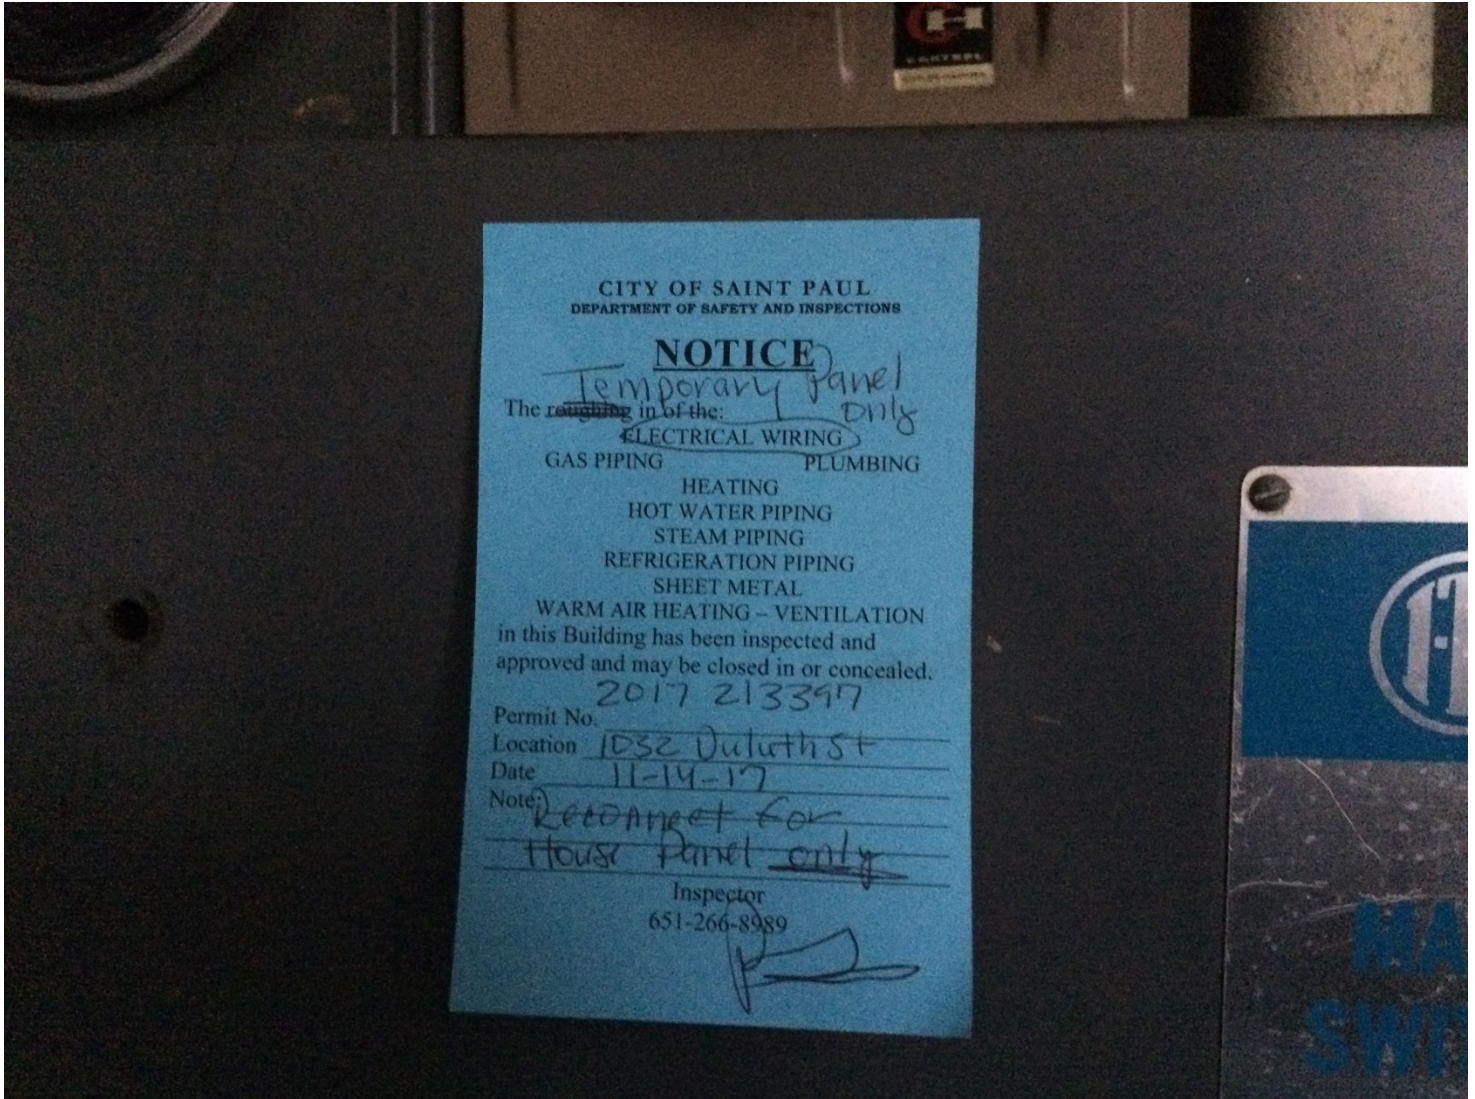 CONTROL
CITY OF SAINT PAUL
DEPARTMENT OF SAFETY AND INSPECTIONS
NOTICE
Temporary Panel
only
The roughing in of the:
ELECTRICAL WIRING
GAS PIPING PLUMBING
HEATING
HOT WATER PIPING
STEAM PIPING
REFRIGERATION PIPING
SHEET METAL
WARM AIR HEATING – VENTILATION
in this Building has been inspected and
approved and may be closed in or concealed.
2017 213397
Permit No.
Location 1032 Duluth St
Date 11-14-17
Note: Reconnect for
House Panel only
Inspector
651-266-8989
MA
SWIT